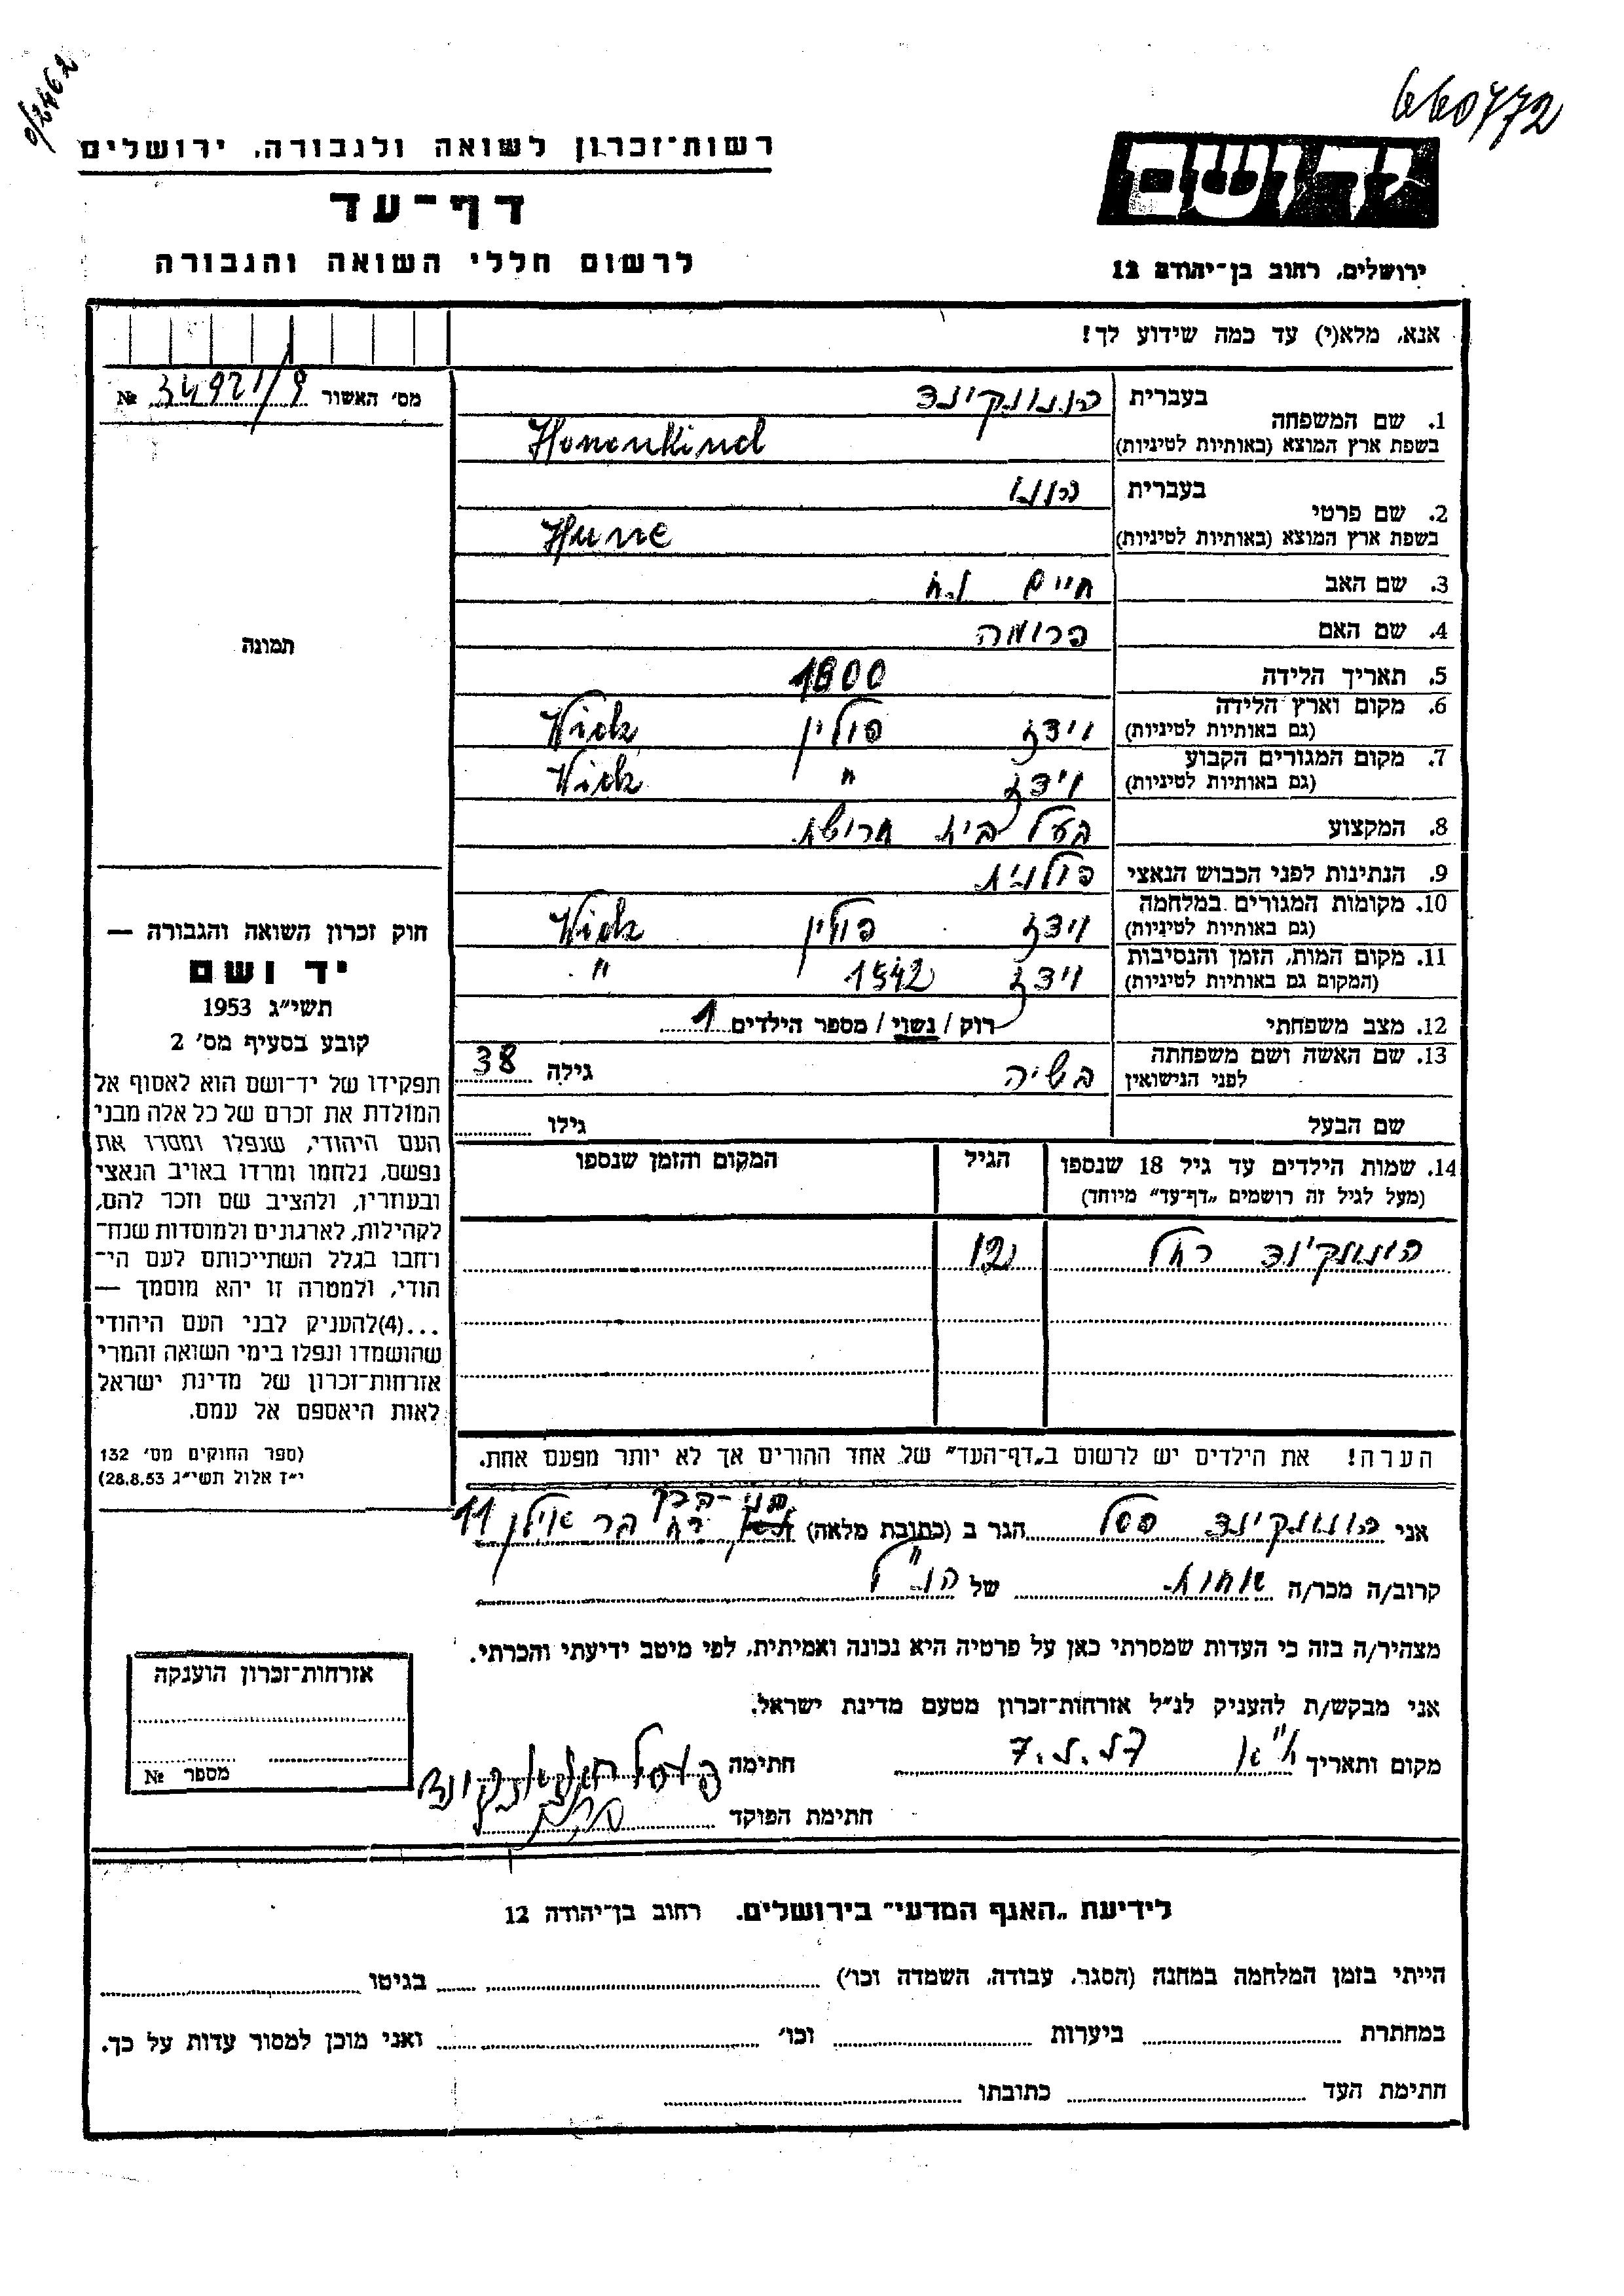 660772
רשות־זכרון לשואה ולגבורה, ירושלים
דף־עד
לרשום חללי השואה והגבורה
ידושם
ירושלים, רחוב בן־יהודה 12
אנא, מלא(י) עד כמה שידוע לך!
מס' האשור № 34921/9
תמונה
1. שם המשפחה
בעברית הוננקינד
בשפת ארץ המוצא (באותיות לטיניות) Honenkind
2. שם פרטי
בעברית הונו
בשפת ארץ המוצא (באותיות לטיניות) Hune
3. שם האב חיים
4. שם האם פרומה
5. תאריך הלידה 1800
6. מקום וארץ הלידה (גם באותיות לטיניות) וידז פולין Widz
7. מקום המגורים הקבוע (גם באותיות לטיניות) וידז " Widz
8. המקצוע בעל בית חרושת
9. הנתינות לפני הכבוש הנאצי פולנית
10. מקומות המגורים במלחמה (גם באותיות לטיניות) וידז פולין Widz
11. מקום המות, הזמן והנסיבות (המקום גם באותיות לטיניות) וידז 1942 "
12. מצב משפחתי רוק / נשוי / מספר הילדים 1
13. שם האשה ושם משפחתה לפני הנישואין בשיה גילה 38
שם הבעל גילו
14. שמות הילדים עד גיל 18 שנספו הגיל המקום והזמן שנספו
(מעל לגיל זה רושמים „דף־עד" מיוחד)
הוננקינד רחל 12
הערה! את הילדים יש לרשום ב„דף־העד" של אחד ההורים אך לא יותר מפעם אחת.
חוק זכרון השואה והגבורה —
יד ושם
תשי"ג 1953
קובע בסעיף מס' 2
תפקידו של יד־ושם הוא לאסוף אל
המולדת את זכרם של כל אלה מבני
העם היהודי, שנפלו ומסרו את
נפשם, נלחמו ומרדו באויב הנאצי
ובעוזריו, ולהציב שם וזכר להם,
לקהילות, לארגונים ולמוסדות שנח־
רחבו בגלל השתייכותם לעם הי־
הודי, ולמטרה זו יהא מוסמך —
...(4)להעניק לבני העם היהודי
שהושמדו ונפלו בימי השואה והמרי
אזרחות־זכרון של מדינת ישראל
לאות היאספם אל עמם.
(ספר החוקים מס' 132
י"ז אלול תשי"ג 28.8.53)
בני-ברק
אני הוננקינד פסל הגר ב (כתובת מלאה) רח' בר אילן 11
קרוב/ה מכר/ה אחות של הנ"ל
מצהיר/ה בזה כי העדות שמסרתי כאן על פרטיה היא נכונה ואמיתית, לפי מיטב ידיעתי והכרתי.
אני מבקש/ת להעניק לנ"ל אזרחות־זכרון מטעם מדינת ישראל.
מקום ותאריך ת"א חתימה
חתימת הפוקד
אזרחות־זכרון הוענקה
מספר №
לידיעת „האגף המדעי" בירושלים, רחוב בן־יהודה 12
הייתי בזמן המלחמה במחנה (הסגר, עבודה, השמדה וכו') בגיטו
במחתרת ביערות וכו' ואני מוכן למסור עדות על כך.
חתימת העד כתובתו